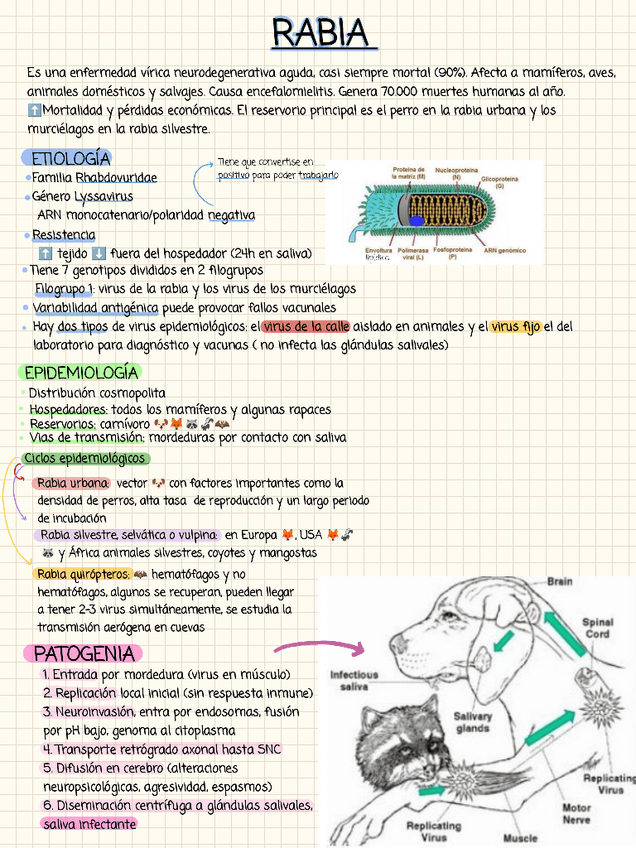 RABIA
Es una enfermedad vírica neurodegenerativa aguda, casi siempre mortal (90%). Afecta a mamíferos, aves,
animales domésticos y salvajes. Causa encefalomielitis. Genera 70.000 muertes humanas al año.
⬆️Mortalidad y pérdidas económicas. El reservorio principal es el perro en la rabia urbana y los
murciélagos en la rabia silvestre.
ETIOLOGÍA
Familia Rhabdovuridae
Género Lyssavirus
ARN monocatenario/polaridad negativa
Tiene que convertise en
positivo para poder trabajarlo
Resistencia
⬆️ tejido ⬇️ fuera del hospedador (24h en saliva)
Proteína de
la metriz (M)
Nucleoproteína
(N)
Glicoproteína
(G)
Envoltura
lipídica
Polimerasa
viral (L)
Fosfoproteína
(P)
ARN genómico
Tiene 7 genotipos divididos en 2 filogrupos
Filogrupo 1: virus de la rabia y los virus de los murciélagos
Variabilidad antigénica puede provocar fallos vacunales
Hay dos tipos de virus epidemiológicos: el virus de la calle aislado en animales y el virus fijo el del
laboratorio para diagnóstico y vacunas ( no infecta las glándulas salivales)
EPIDEMIOLOGÍA
Distribución cosmopolita
Hospedadores: todos los mamíferos y algunas rapaces
Reservorios: carnívoro 🐶🦊🦝🦨🦇
Vias de transmisión: mordeduras por contacto con saliva
Ciclos epidemiológicos
Rabia urbana: vector 🐶 con factores importantes como la
densidad de perros, alta tasa de reproducción y un largo periodo
de incubación
Rabia silvestre, selvática o vulpina: en Europa 🦊, USA 🦊🦨
🦝 y África animales silvestres, coyotes y mangostas
Rabia quirópteros: 🦇 hematófagos y no
hematófagos, algunos se recuperan, pueden llegar
a tener 2-3 virus simultáneamente, se estudia la
transmisión aerógena en cuevas
PATOGENIA
1. Entrada por mordedura (virus en músculo)
2. Replicación local inicial (sin respuesta inmune)
3. Neuroinvasión, entra por endosomas, fusión
por pH bajo, genoma al citoplasma
4. Transporte retrógrado axonal hasta SNC
5. Difusión en cerebro (alteraciones
neuropsicológicas, agresividad, espasmos)
6. Diseminación centrífuga a glándulas salivales,
saliva infectante
Brain
Spinal
Cord
Infectious
saliva
Salivary
glands
Replicating
Virus
Motor
Nerve
Replicating
Virus
Muscle